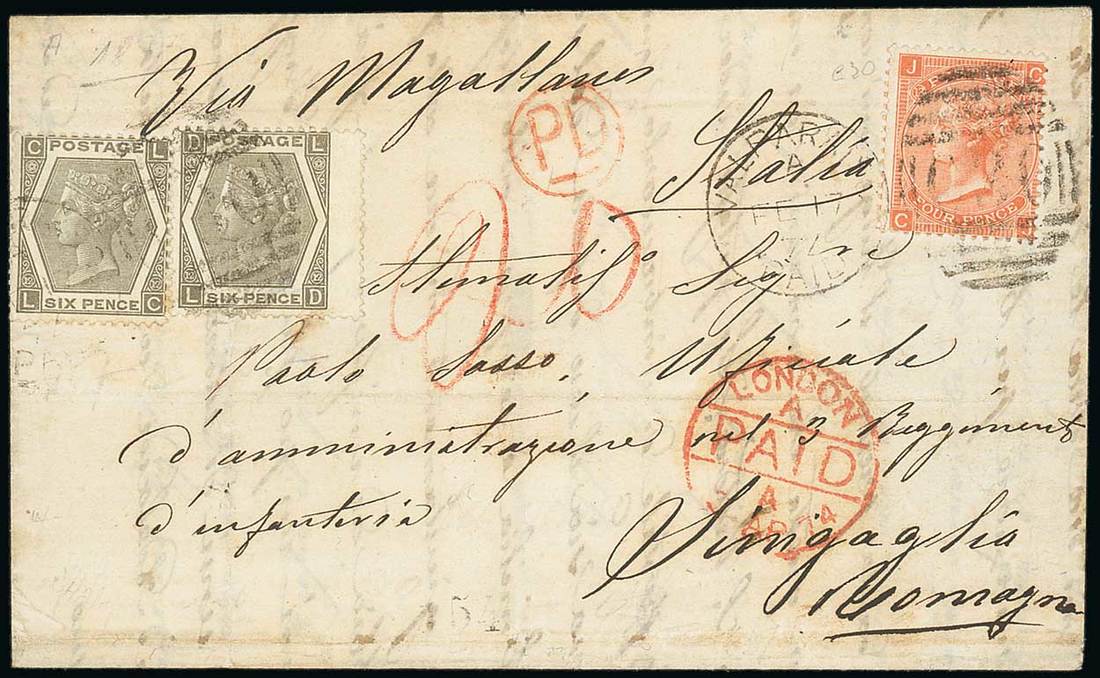 Via Magallanes
PD
Italia
VALPARAISO
A
FE 17
74
PAID
C J
FOUR PENCE
C
C POSTAGE L
L SIX PENCE C
D POSTAGE L
L SIX PENCE D
2d
Stimatiss.o Sig.re
Paolo Sasso, Uficiale
d'amministrazione nel 3 Reggimento
d'infanteria
LONDON
A
PAID
4
AP 74
Sinigaglia
Romagna